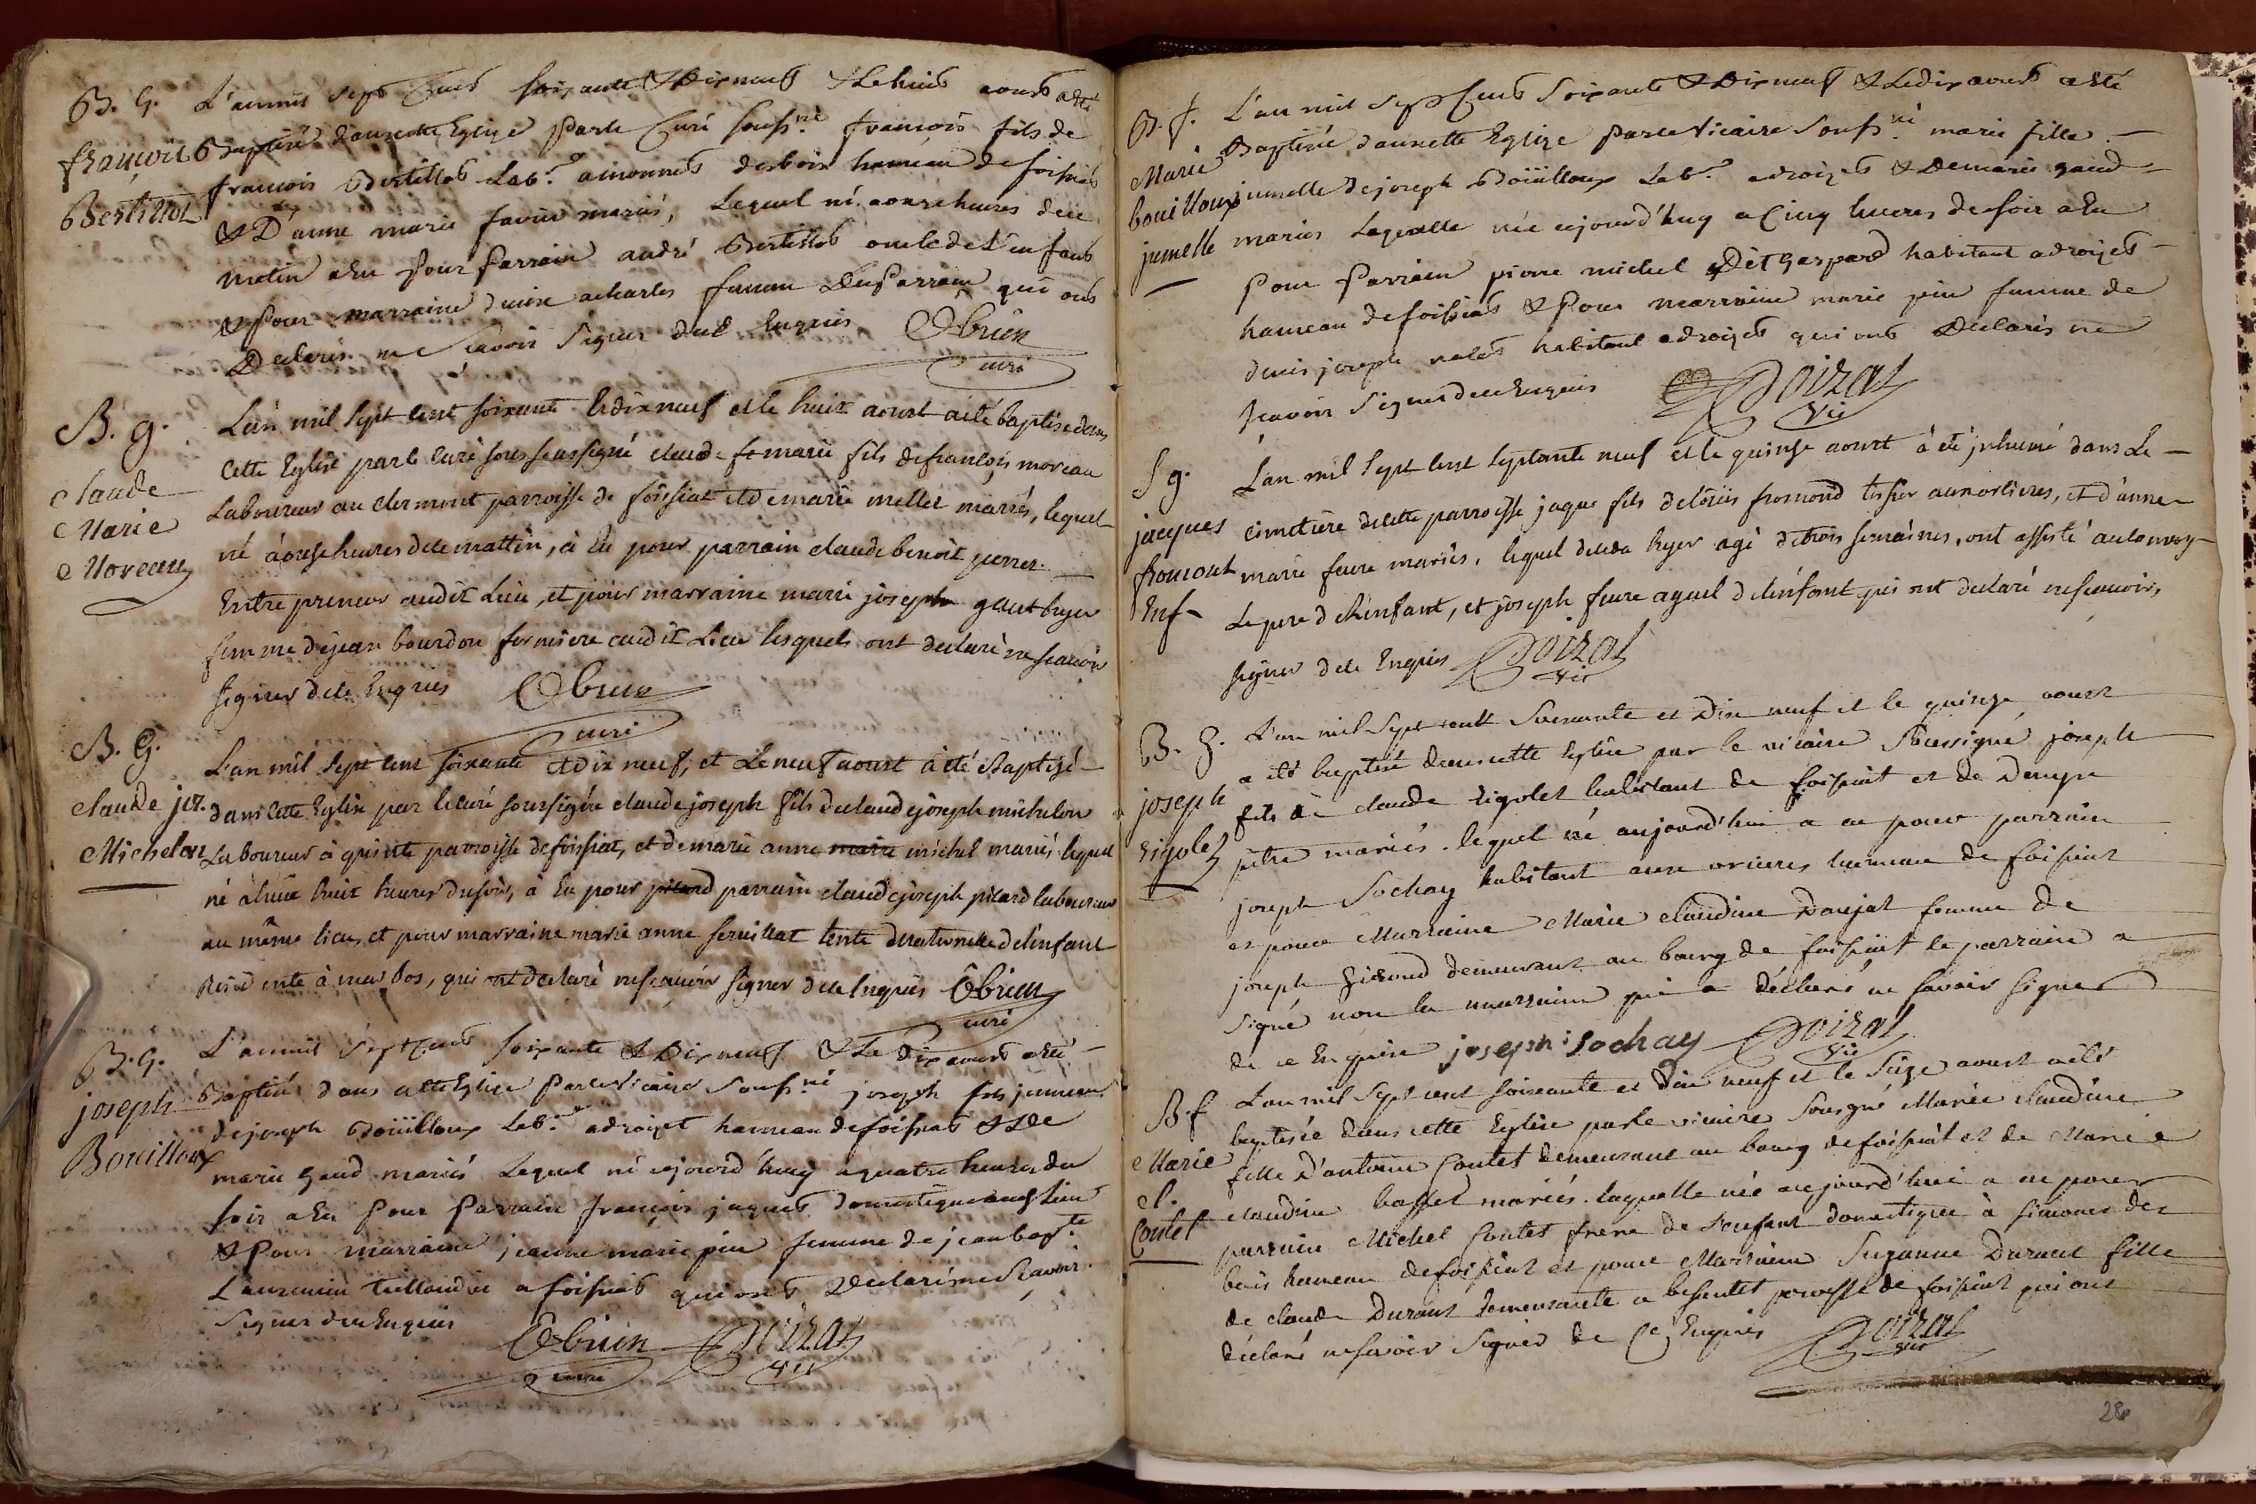 B. G.
françois
Bertillot
L'an mil sept Cens soixante & Dix neuf & Le huit aoust a été
Baptisé dans cette Eglize Par le Curé souss.né françois fils de
françois Bertillot Lab.r desbois hameau de foissiat
& D'anne marie favier mariés, Lequel né a onze heures de ce
matin a Eu Pour Parrain andré Bertillot oncle de L'enfant
& Pour marraine femme Du Parrain qui ont
Declarés ne scavoir signer de ce Enquis Obrien
curé
B. g.
claude
Marie
Moreau
L'an mil sept cent soixante et dix neuf et le huit aoust a été baptisé dans
cette Eglise par le curé sous soussigné claude fe marie fils de françois moreau
Laboureur au clermont parroisse de foissiat et de marie mellet mariés, lequel
né à onse heures de ce mattin, à Eu pour parrain claude benoit perret
Entrepreneur audit Lieu, et pour marraine marie joseph
femme de jean bourdon fermiere audit Lieu lesquels ont declaré ne scauoir
signer de ce Enquis Obrien
curé
B. G.
claude jos.
Michelon
L'an mil sept cent soixante et dix neuf, et Le neuf aoust à été Baptizé
dans cette Eglise par le curé soussigné claude joseph fils de claude joseph michelon
Laboureur à parroisse de foissiat, et de marie anne marie michel mariés lequel
né huit heures du soir, à Eu pour pitard parrain claude joseph pitard laboureur
au même lieu, et pour marraine marie anne tente maternelle de l'enfant
Residente à qui ont declaré ne scauoir signer de ce Enquis Obrien
curé
B. G.
joseph
Bouilloux
L'an mil sept Cens soixante & Dix neuf & Le Dix aoust a été
Baptisé dans cette Eglize Par le Vicaire souss.né joseph fils jumeau
de joseph Boüilloux Lab.r a droizet hameau de foissiat & de
marie Gaud mariés Lequel né aujourd'huy a quatre heures du
soir a Eu Pour Parrain françois jaquet domestique aud. Lieu
& Pour marraine jeanne marie piu femme de jean bap.te
Laurencin a foissiat qui ont Declaré ne scavoir
signer de ce Enquis Obrien Doizat
curé Vic
B. f.
Marie
bouilloux
jumelle
L'an mil sept Cens soixante & Dix neuf & Le dix aoust a été
Baptisé dans cette Eglize Par le Vicaire souss.né marie fille
jumelle de joseph Boüilloux Lab.r a droizet & De marie gaud
mariés Laquelle née aujourd'huy a Cinq heures de soir a Eu
Pour Parrain pierre michel Dit Gaspard habitant a droizet
hameau de foissiat & Pour marraine marie piu femme de
denis joseph habitant a droizet qui ont Declarés ne
scavoir signer de ce Enquis Doizat
Vic
S g.
jacques
fromont
Enf
L'an mil sept cent septante neuf et le quinse aoust à été jnhumé dans Le
cimetière de cette parroisse jaque fils de loüis fromond tissier aux orcieres, et d'anne
marie feure mariés, lequel deceda hyer agé de trois semaines, ont assisté au convoy
Le pere de l'enfant, et joseph feure ayeul de l'enfant qui ont declaré ne scauoir
signer de ce Enquis Doizat
Vic
B. g.
joseph
rigolet
L'an mil sept cent soixante et dix neuf et le quinze aoust
a été baptisé dans cette Eglise par le vicaire soussigné joseph
fils de claude rigolet habitant de foissiat et de
mariés. lequel né aujourd'hui a eu pour parrain
joseph Sochay habitant aux orcieres hameau de foissiat
et pour Marraine Marie claudine femme de
joseph demeurant au bourg de foissiat le parrain a
signé non la marraine qui a déclaré ne savoir signer
de ce Enquise joseph sochay Doizat
Vic
B. f
Marie
cl.
Contet
L'an mil sept cent soixante et dix neuf et le seize aoust a été
baptisée dans cette Eglise par le vicaire sousigné Marie claudine
fille D'antoine Contet demeurant au bourg de foissiat et de Marie
claudine basset mariés. laquelle née aujourd'hui a eu pour
parrain Michel Contet frere de l'enfant domestique à
bois hameau de foissiat et pour Marraine Suzanne Durand fille
de claude Durant demeurante a paroisse de foissiat qui ont
déclaré ne savoir signer de ce Enquis Doizat
Vic
28